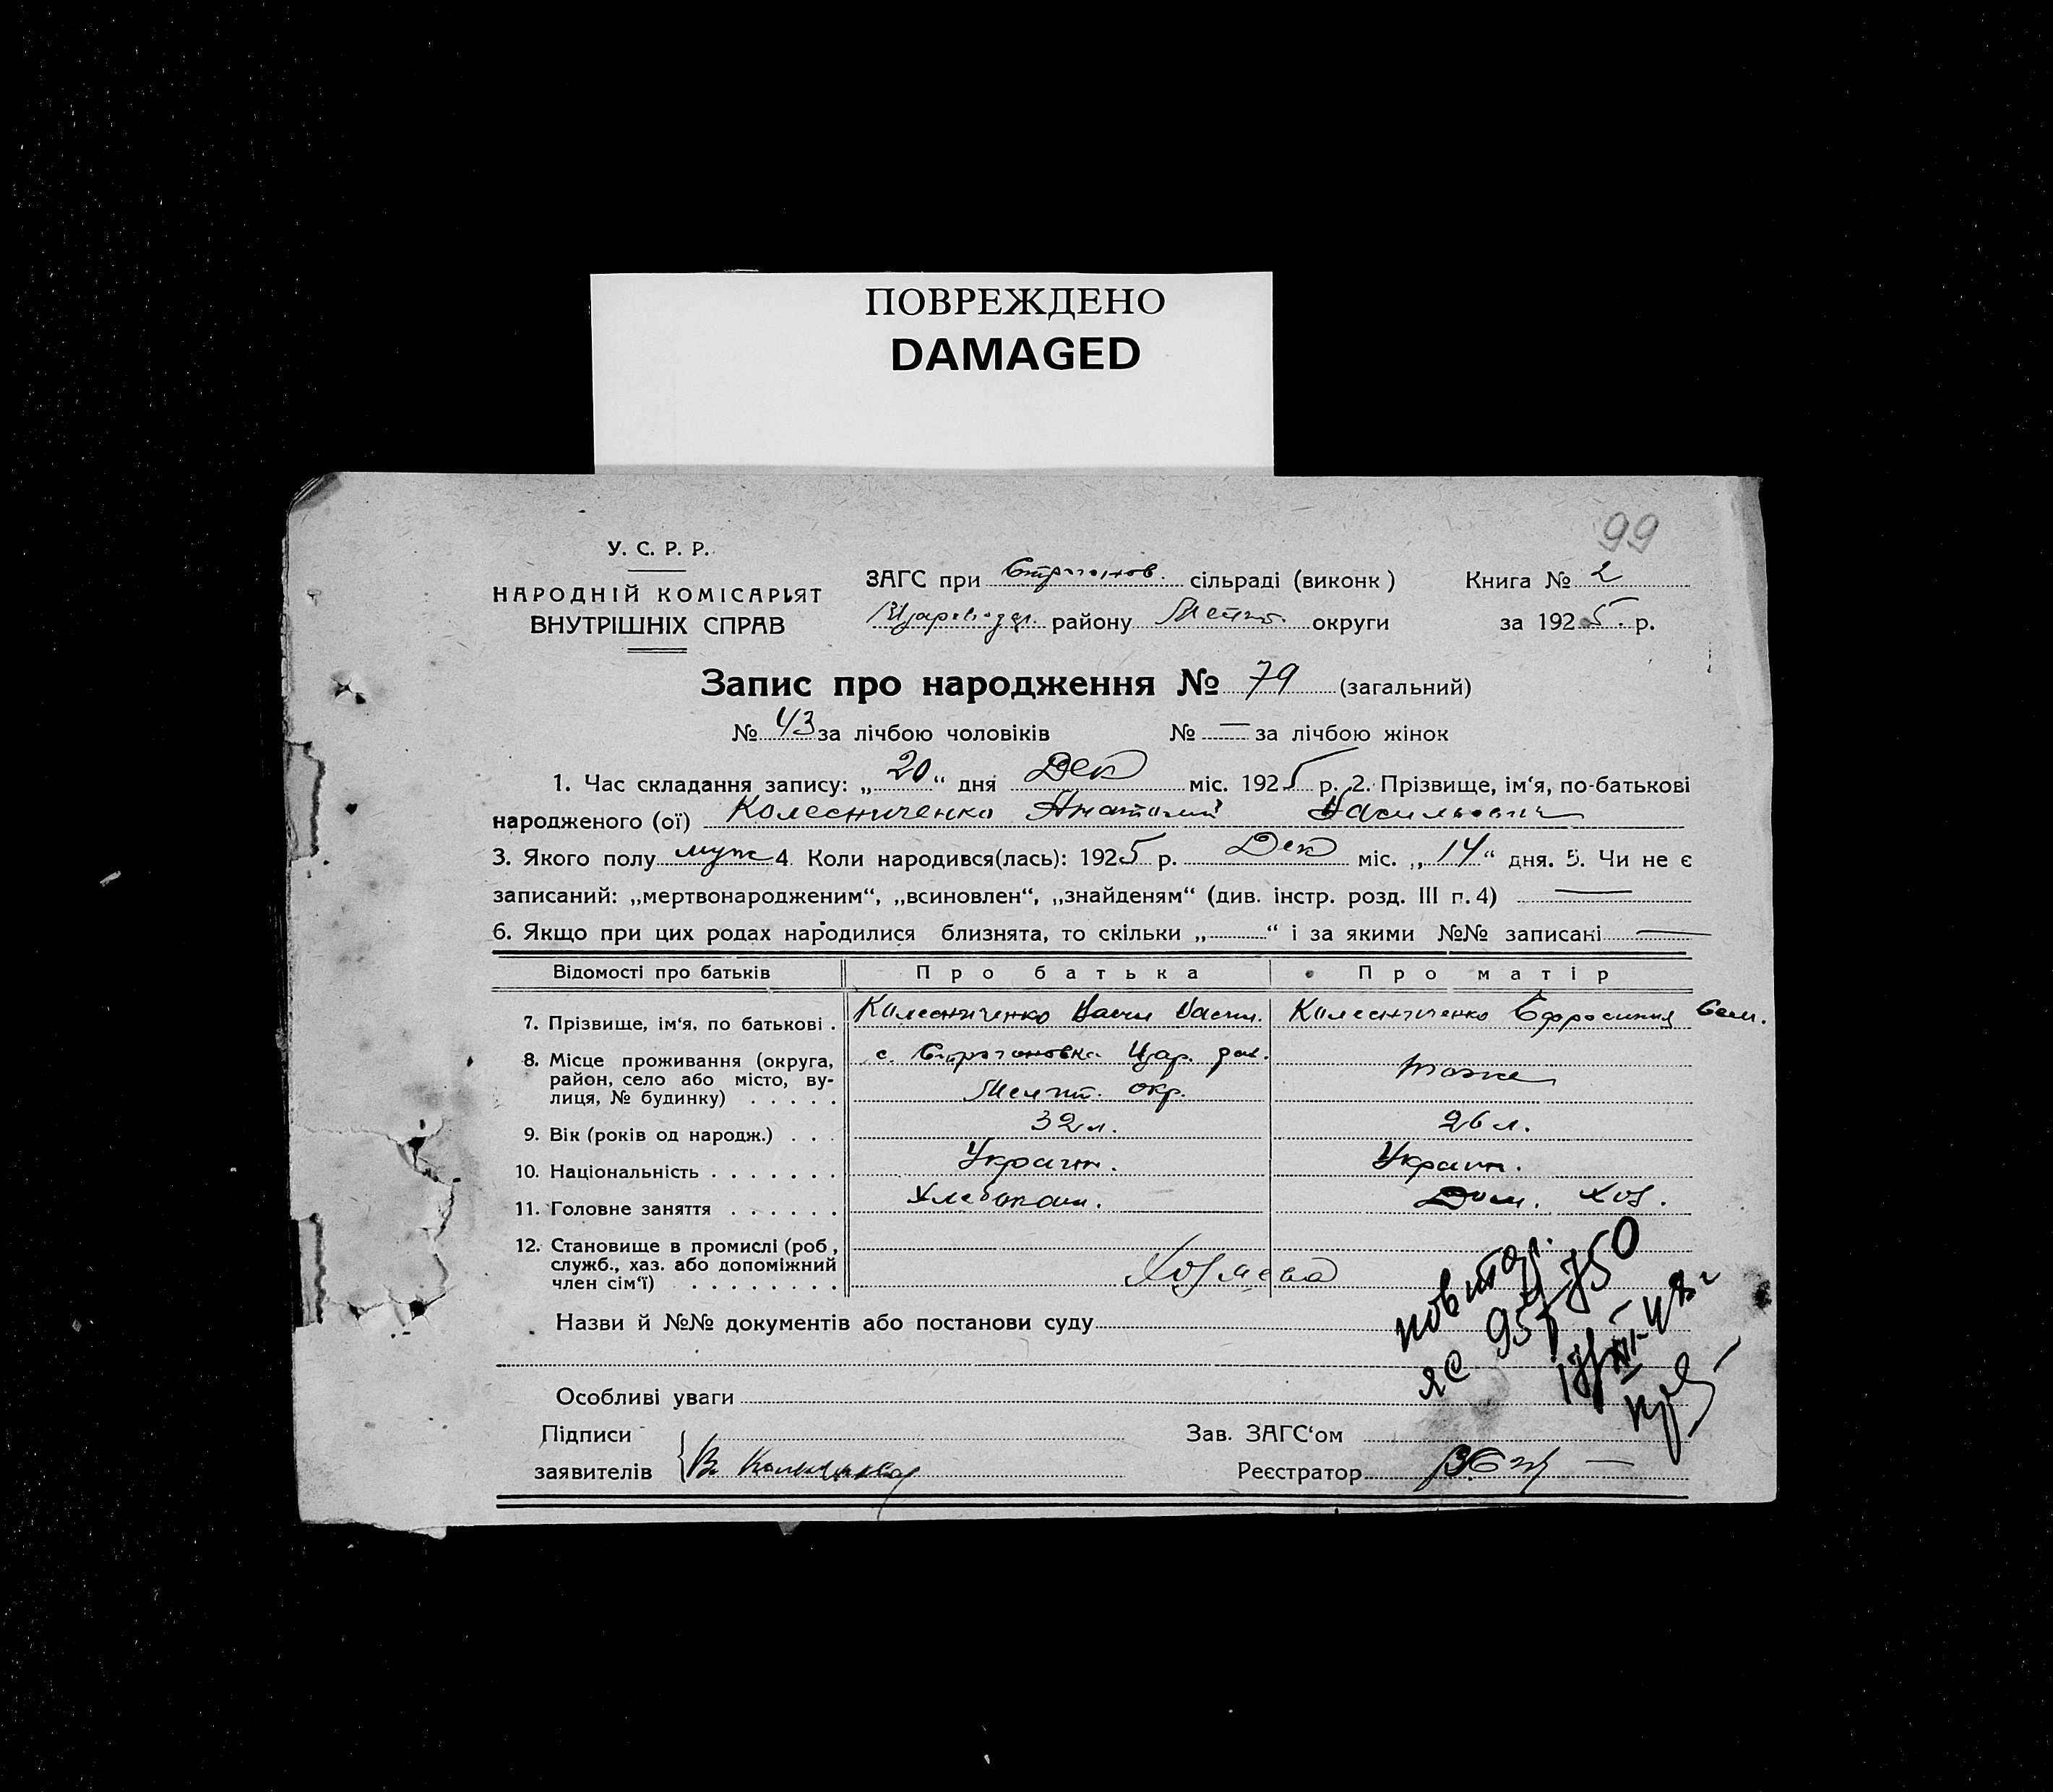 ПОВРЕЖДЕНО
DAMAGED
99
У. С. Р. Р.
НАРОДНІЙ КОМІСАРІЯТ
ВНУТРІШНІХ СПРАВ
ЗАГС при Строганов. сільраді (виконк) Книга № 2
району Меліт. округи за 1925 р.
Запис про народження № 79 (загальний)
№ 43 за лічбою чоловіків № — за лічбою жінок
1. Час складання запису: „20“ дня Дек міс. 1925 р. 2. Прізвище, ім'я, по-батькові
народженого (ої) Колесниченко Анатолий Васильевич
3. Якого полу муж 4. Коли народився(лась): 1925 р. Дек міс. „14“ дня. 5. Чи не є
записаний: „мертвонародженим“, „всиновлен“, „знайденям“ (див. інстр. розд. III п. 4) —
6. Якщо при цих родах народилися близнята, то скільки „ “ і за якими №№ записані —
Відомості про батьків Про батька Про матір
7. Прізвище, ім'я, по батькові . Колесниченко Васи Васил. Колесниченко Ефросиния Сем.
8. Місце проживання (округа, с. Строгановка Цар. рай.
район, село або місто, ву- Мелит. окр. тоже
лиця, № будинку) . . . . .
9. Вік (років од народж.) . . . 32 л. 26 л.
10. Національність . . . . . . . Украин. Украин.
11. Головне заняття . . . . . . Хлебопаш. Дом. хоз.
12. Становище в промислі (роб.,
служб., хаз. або допоміжний
член сім'ї) . . . . . . . .
Назви й №№ документів або постанови суду
Особливі уваги
Підписи Зав. ЗАГС'ом
заявителів В. Реєстратор